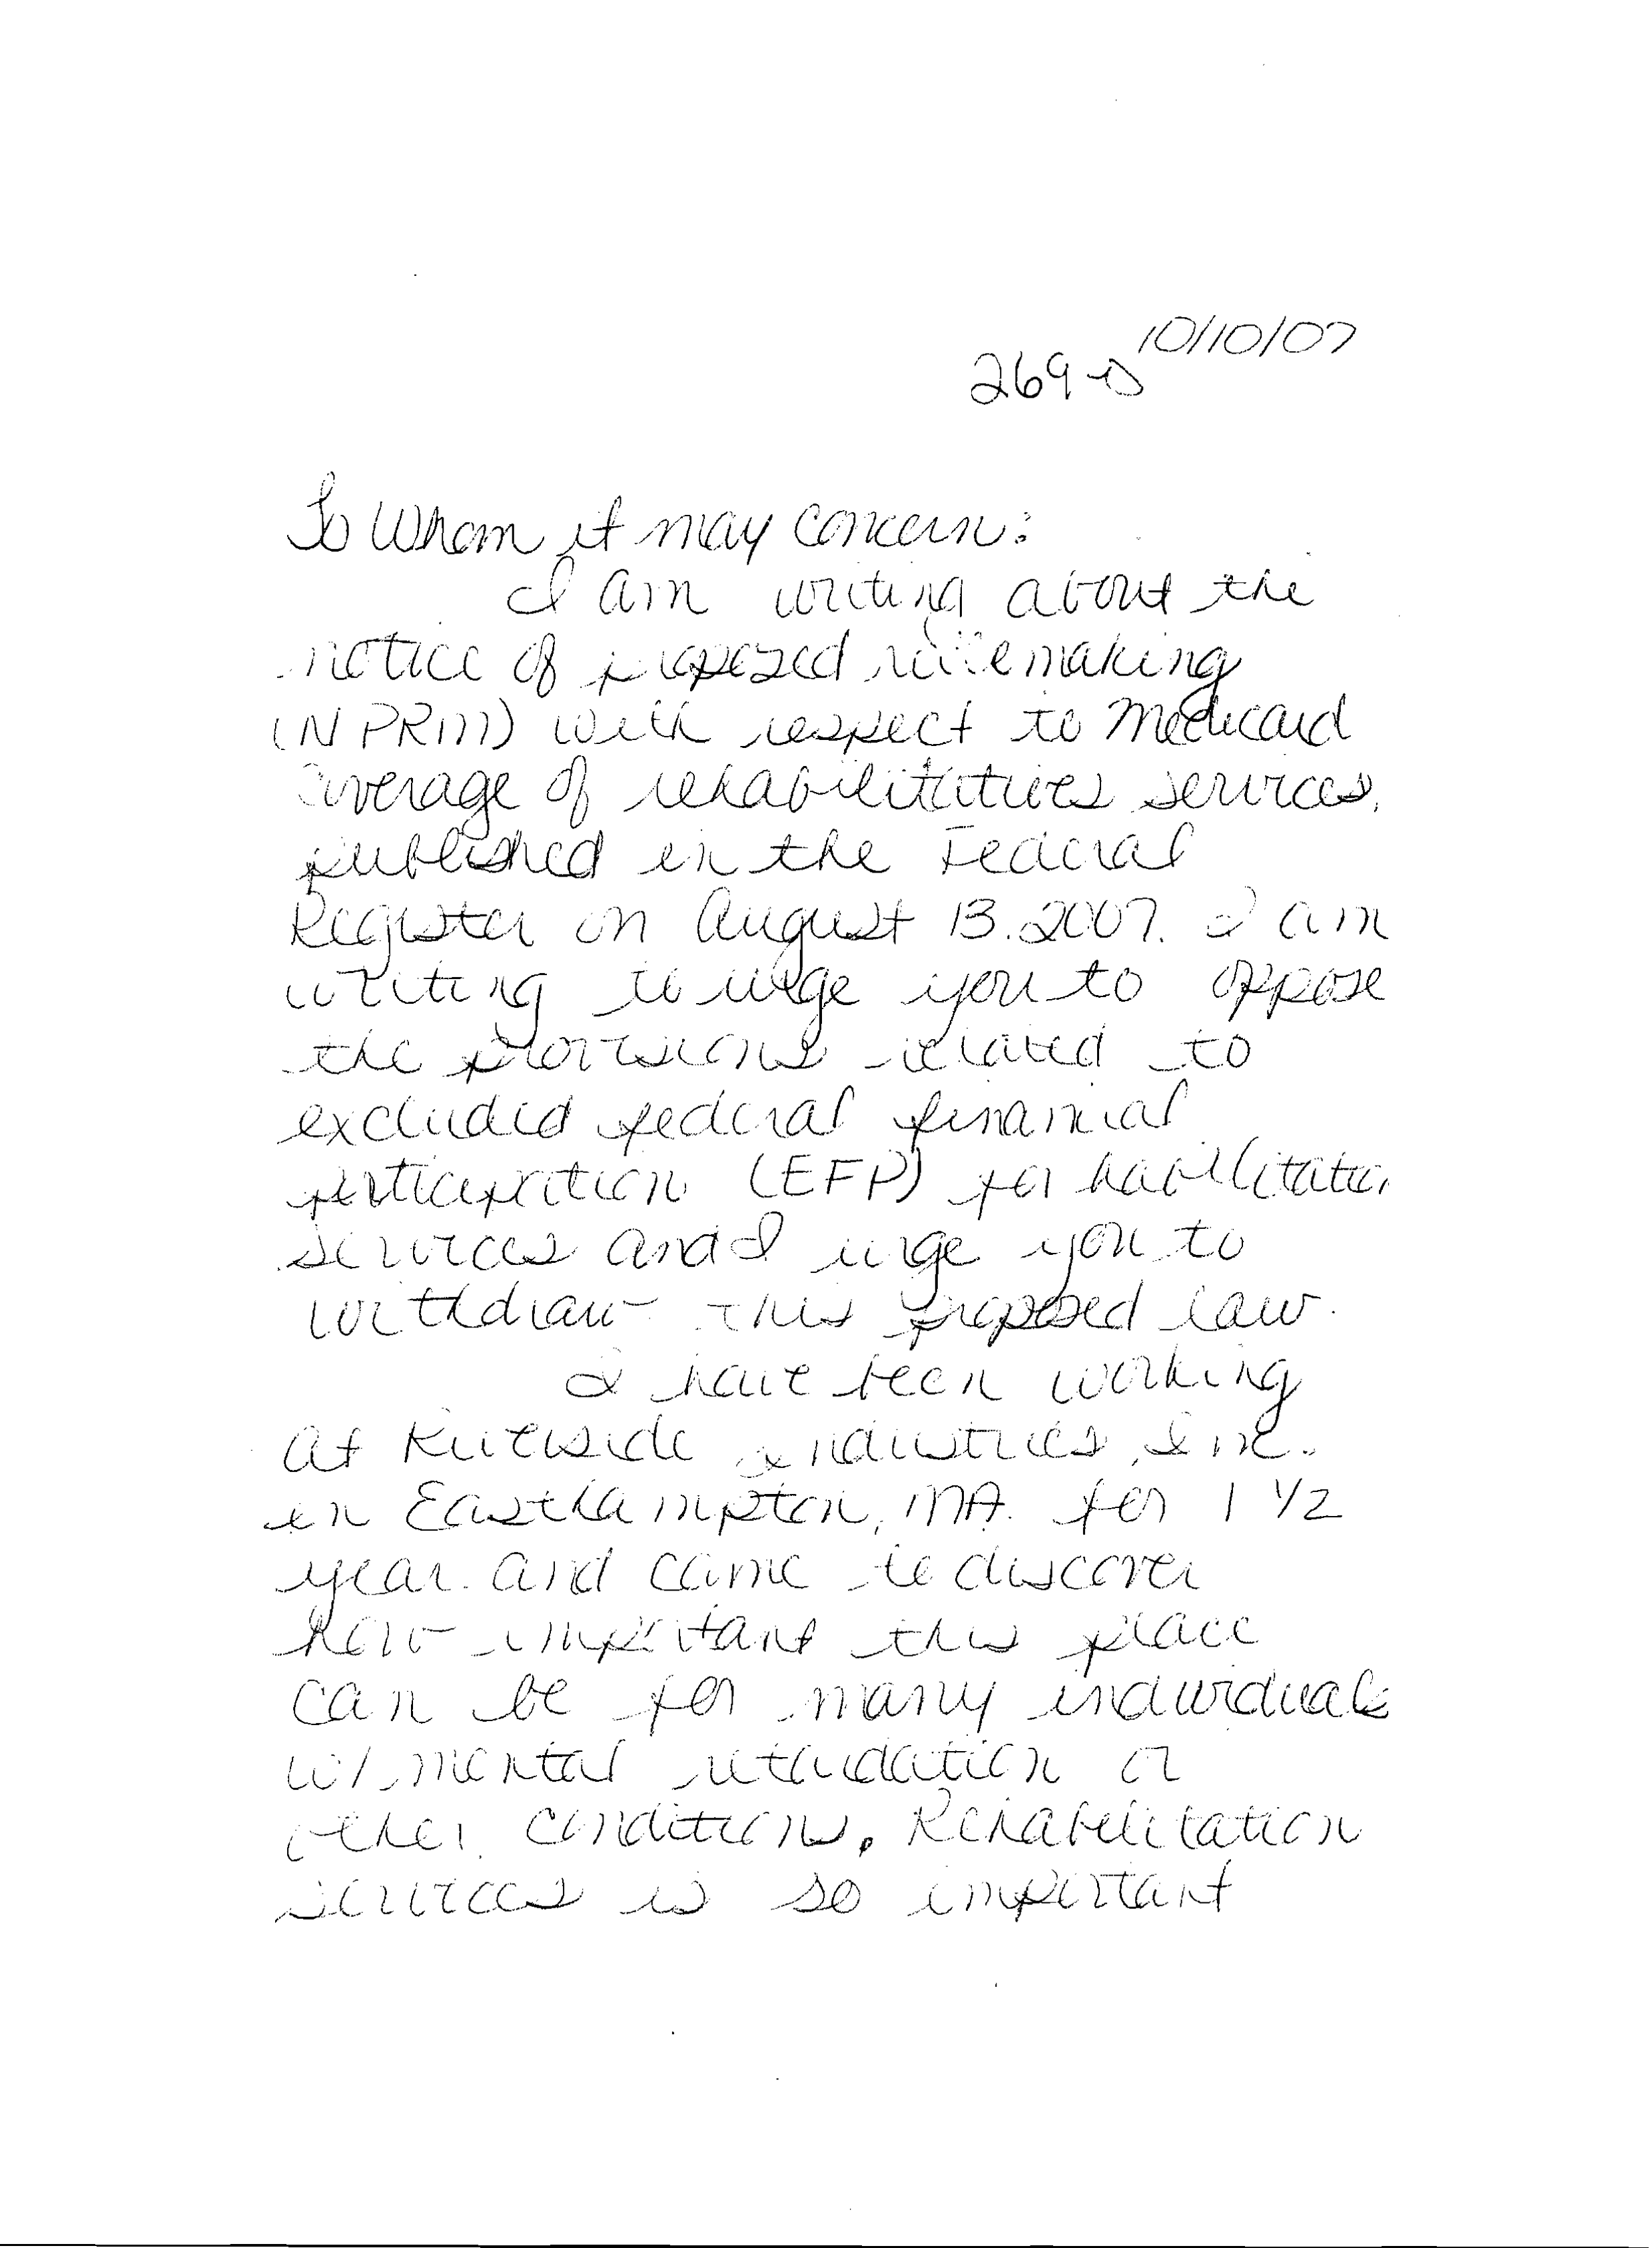 10/10/07
269-
To Whom it may concern:
I am writing about the
notice of proposed rulemaking
(NPRM) with respect to Medicaid
coverage of rehabilititives services,
published in the Federal
Register on August 13.2007. I am
writing to urge you to oppose
the provisions related to
excluded federal financial
participation (EFP) for habilitation
services and I urge you to
withdraw this proposed law.
I have been working
at Riverside Industries, Inc.
in Easthampton, MA. for 1 1/2
year and came to discover
how important this place
can be for many individuals
w/ mental retardation or
other conditions. Rehabilitation
services is so important